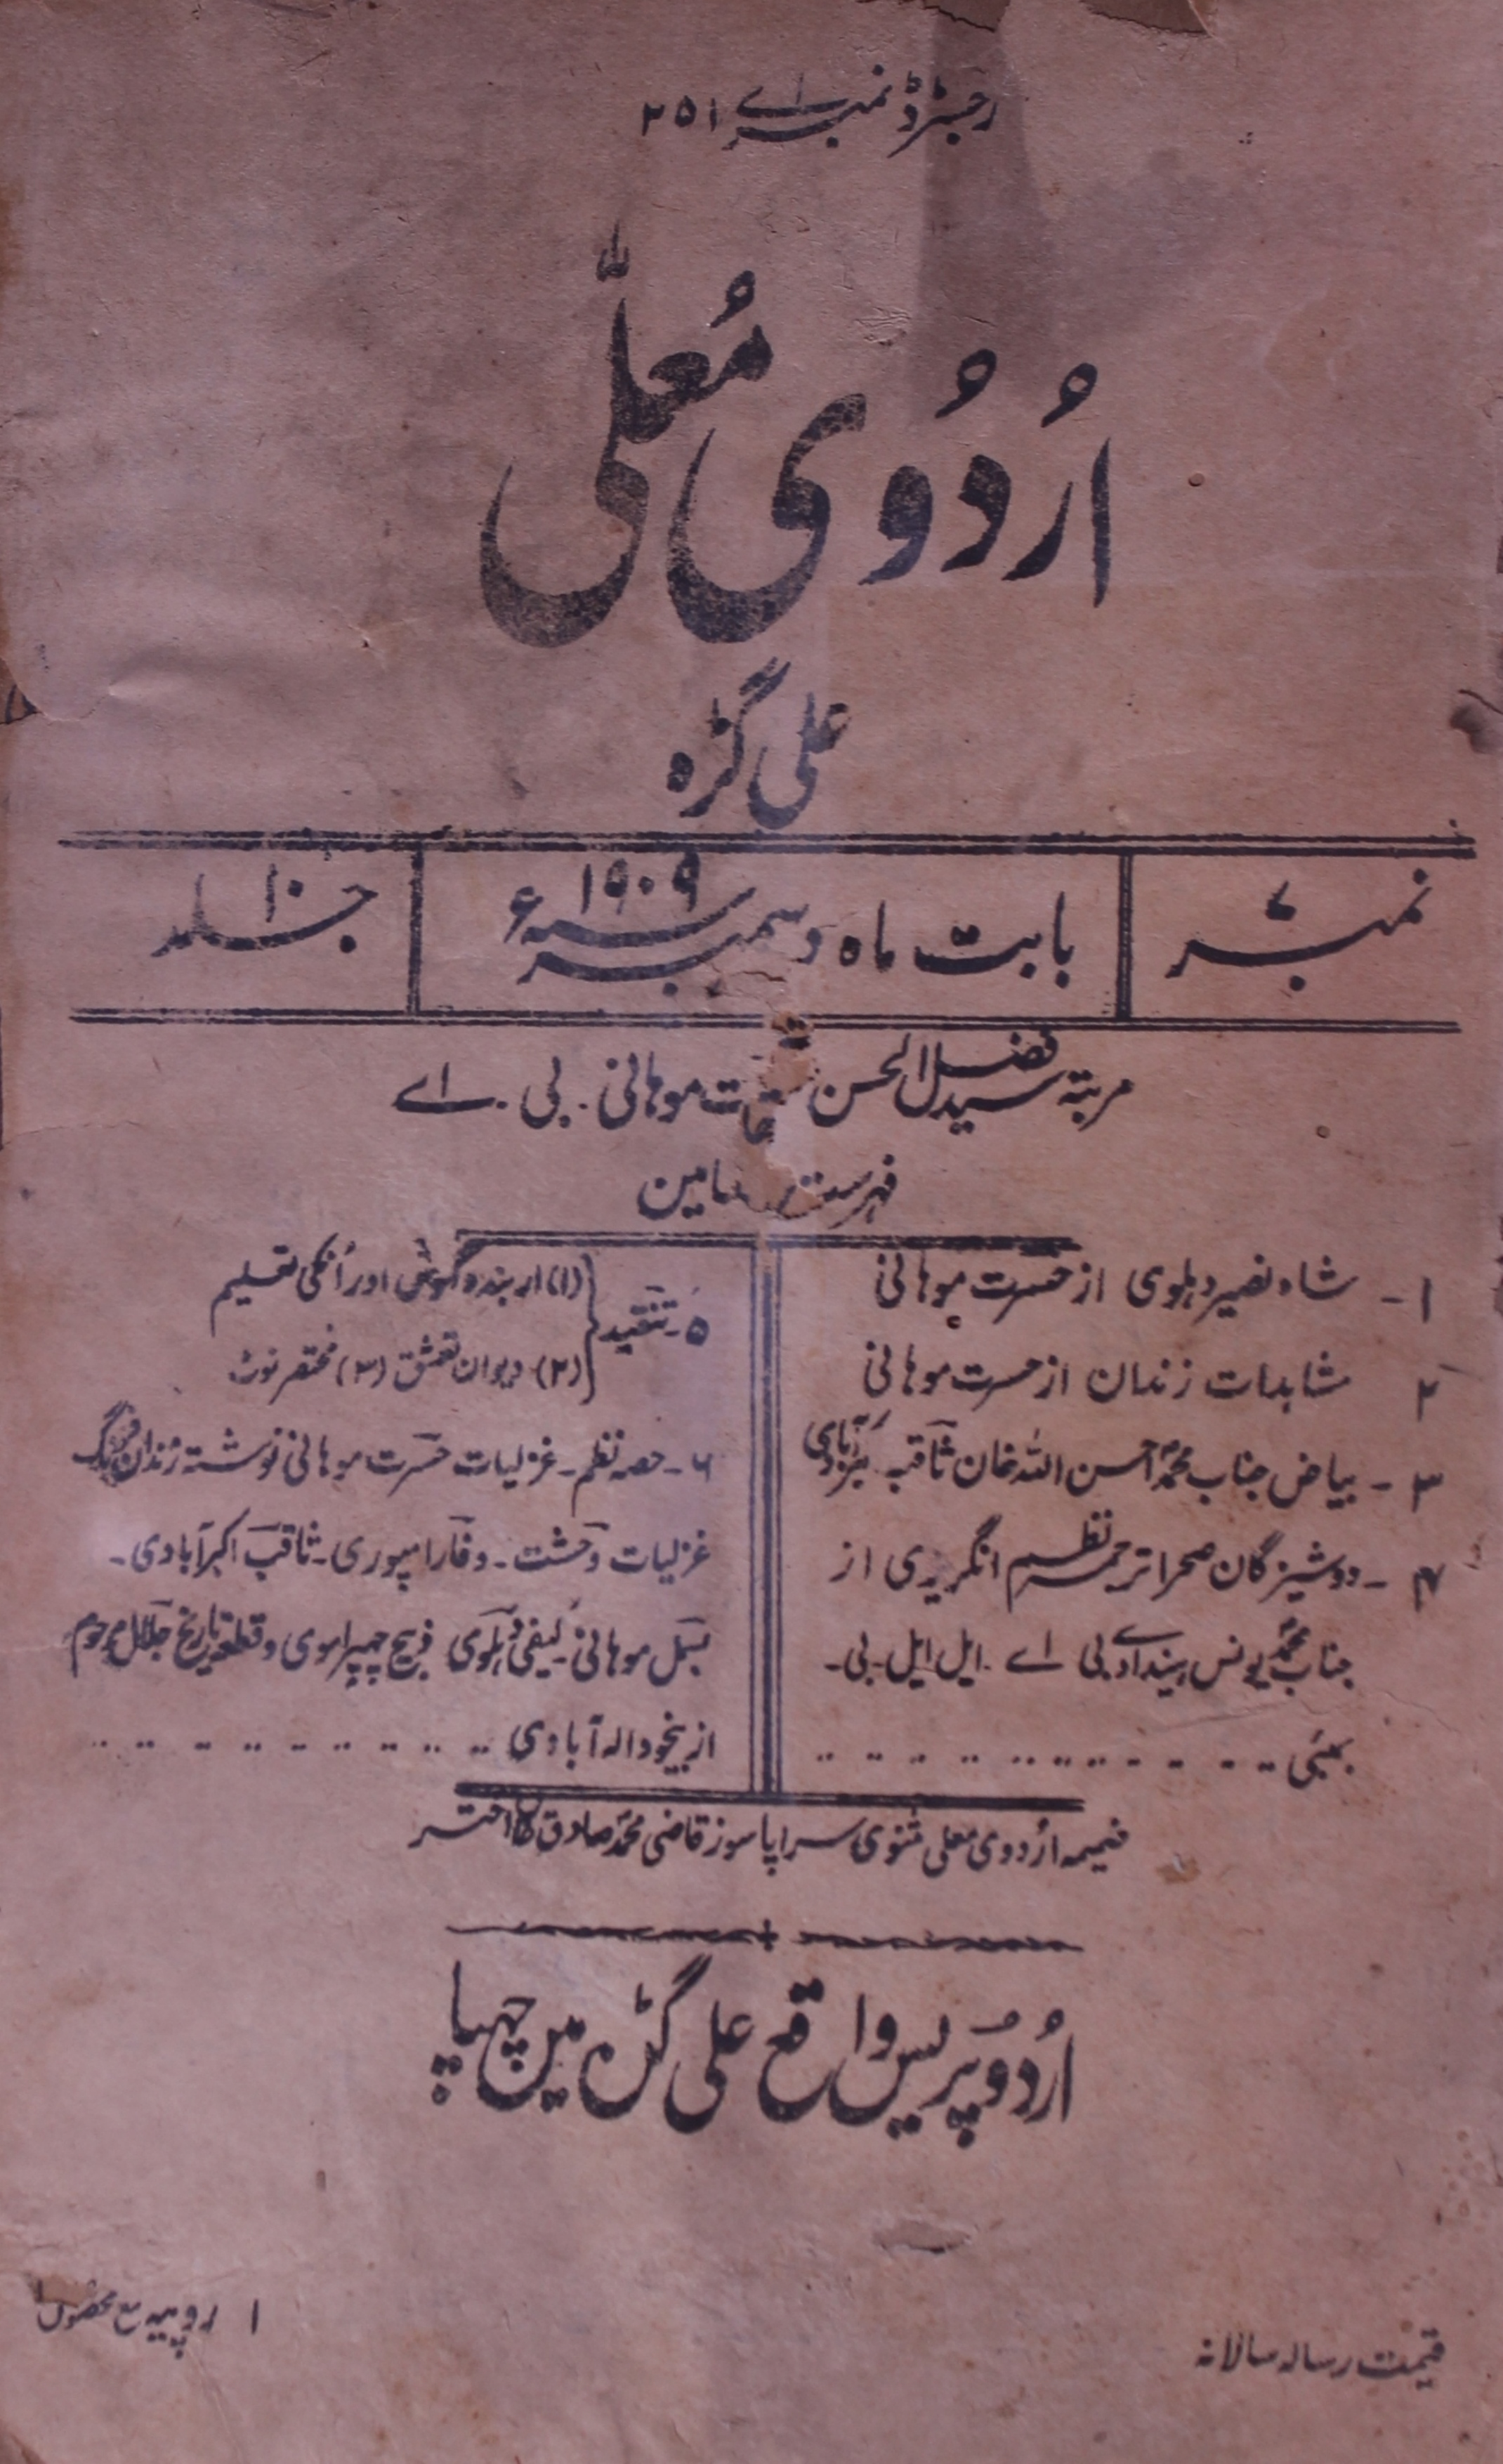 رجسٹرڈ نمبر اے ۲۵۱
اُردُوی مُعلّٰی
علی گڑہ
نمبر ۷
بابت ماہ دسمبر سنہ ۱۹۰۹ء
جلد ۱۰
مرتبۃ سید فضل الحسن موہانی۔ بی۔ اے
فہرست
۱۔ شاہ نصیر دہلوی از حسرت موہانی
۲ مشاہدات زندان از حسرت موہانی
۳۔ بیاض جناب محمد احسن اللہ خان ثاقب
۴۔ دوشیزگان صحرا ترجمہ نظم انگریزی از
جناب محمد یونس بی اے۔ ایل ایل۔ بی۔
بمبئی
۵۔ تنقید
(۱) اربندو گھوش اور اُنکی تعلیم
(۲)۔ دیوان تعشق (۳) مختصر نوٹ
۶۔ حصہ نظم۔ غزلیات حسرت موہانی نوشتہ زندان فرنگ
غزلیات وحشت۔ وفا رامپوری۔ ثاقب اکبرآبادی۔
بسمل موہانی۔ کیفی دہلوی وقطعہ تاریخ جلال مرحوم
از بیخود الہ آبادی
ضمیمہ اُردوی معلی مثنوی سراپا سوز قاضی محمد صادق خان اختر
اُردُو پریس واقع علی گڑہ میں چھپا
قیمت رسالہ سالانہ
۱ روپیہ مع محصول